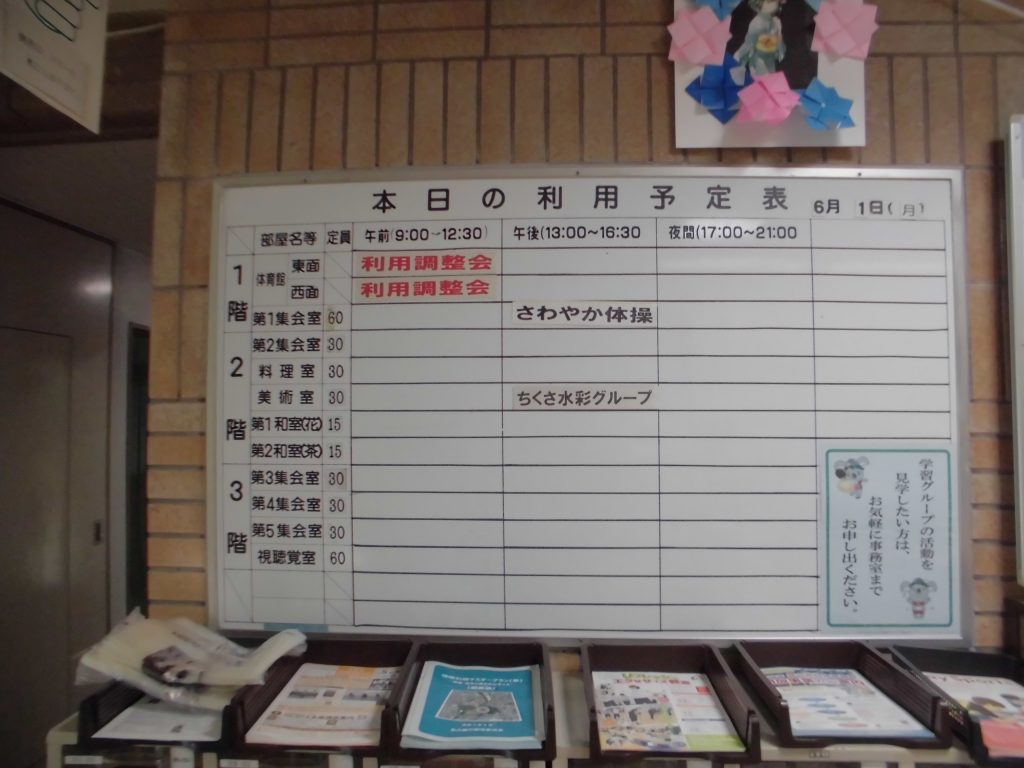 本日の利用予定表 6月 1日(月)
部屋名等 定員 午前(9:00~12:30) 午後(13:00~16:30 夜間(17:00~21:00
1階 体育館 東面 利用調整会
西面 利用調整会
第1集会室 60 さわやか体操
2階 第2集会室 30
料理室 30
美術室 30 ちくさ水彩グループ
第1和室(花) 15
第2和室(茶) 15
3階 第3集会室 30
第4集会室 30
第5集会室 30
視聴覚室 60
学習グループの活動を
見学したい方は、
お気軽に事務室まで
お申し出ください。